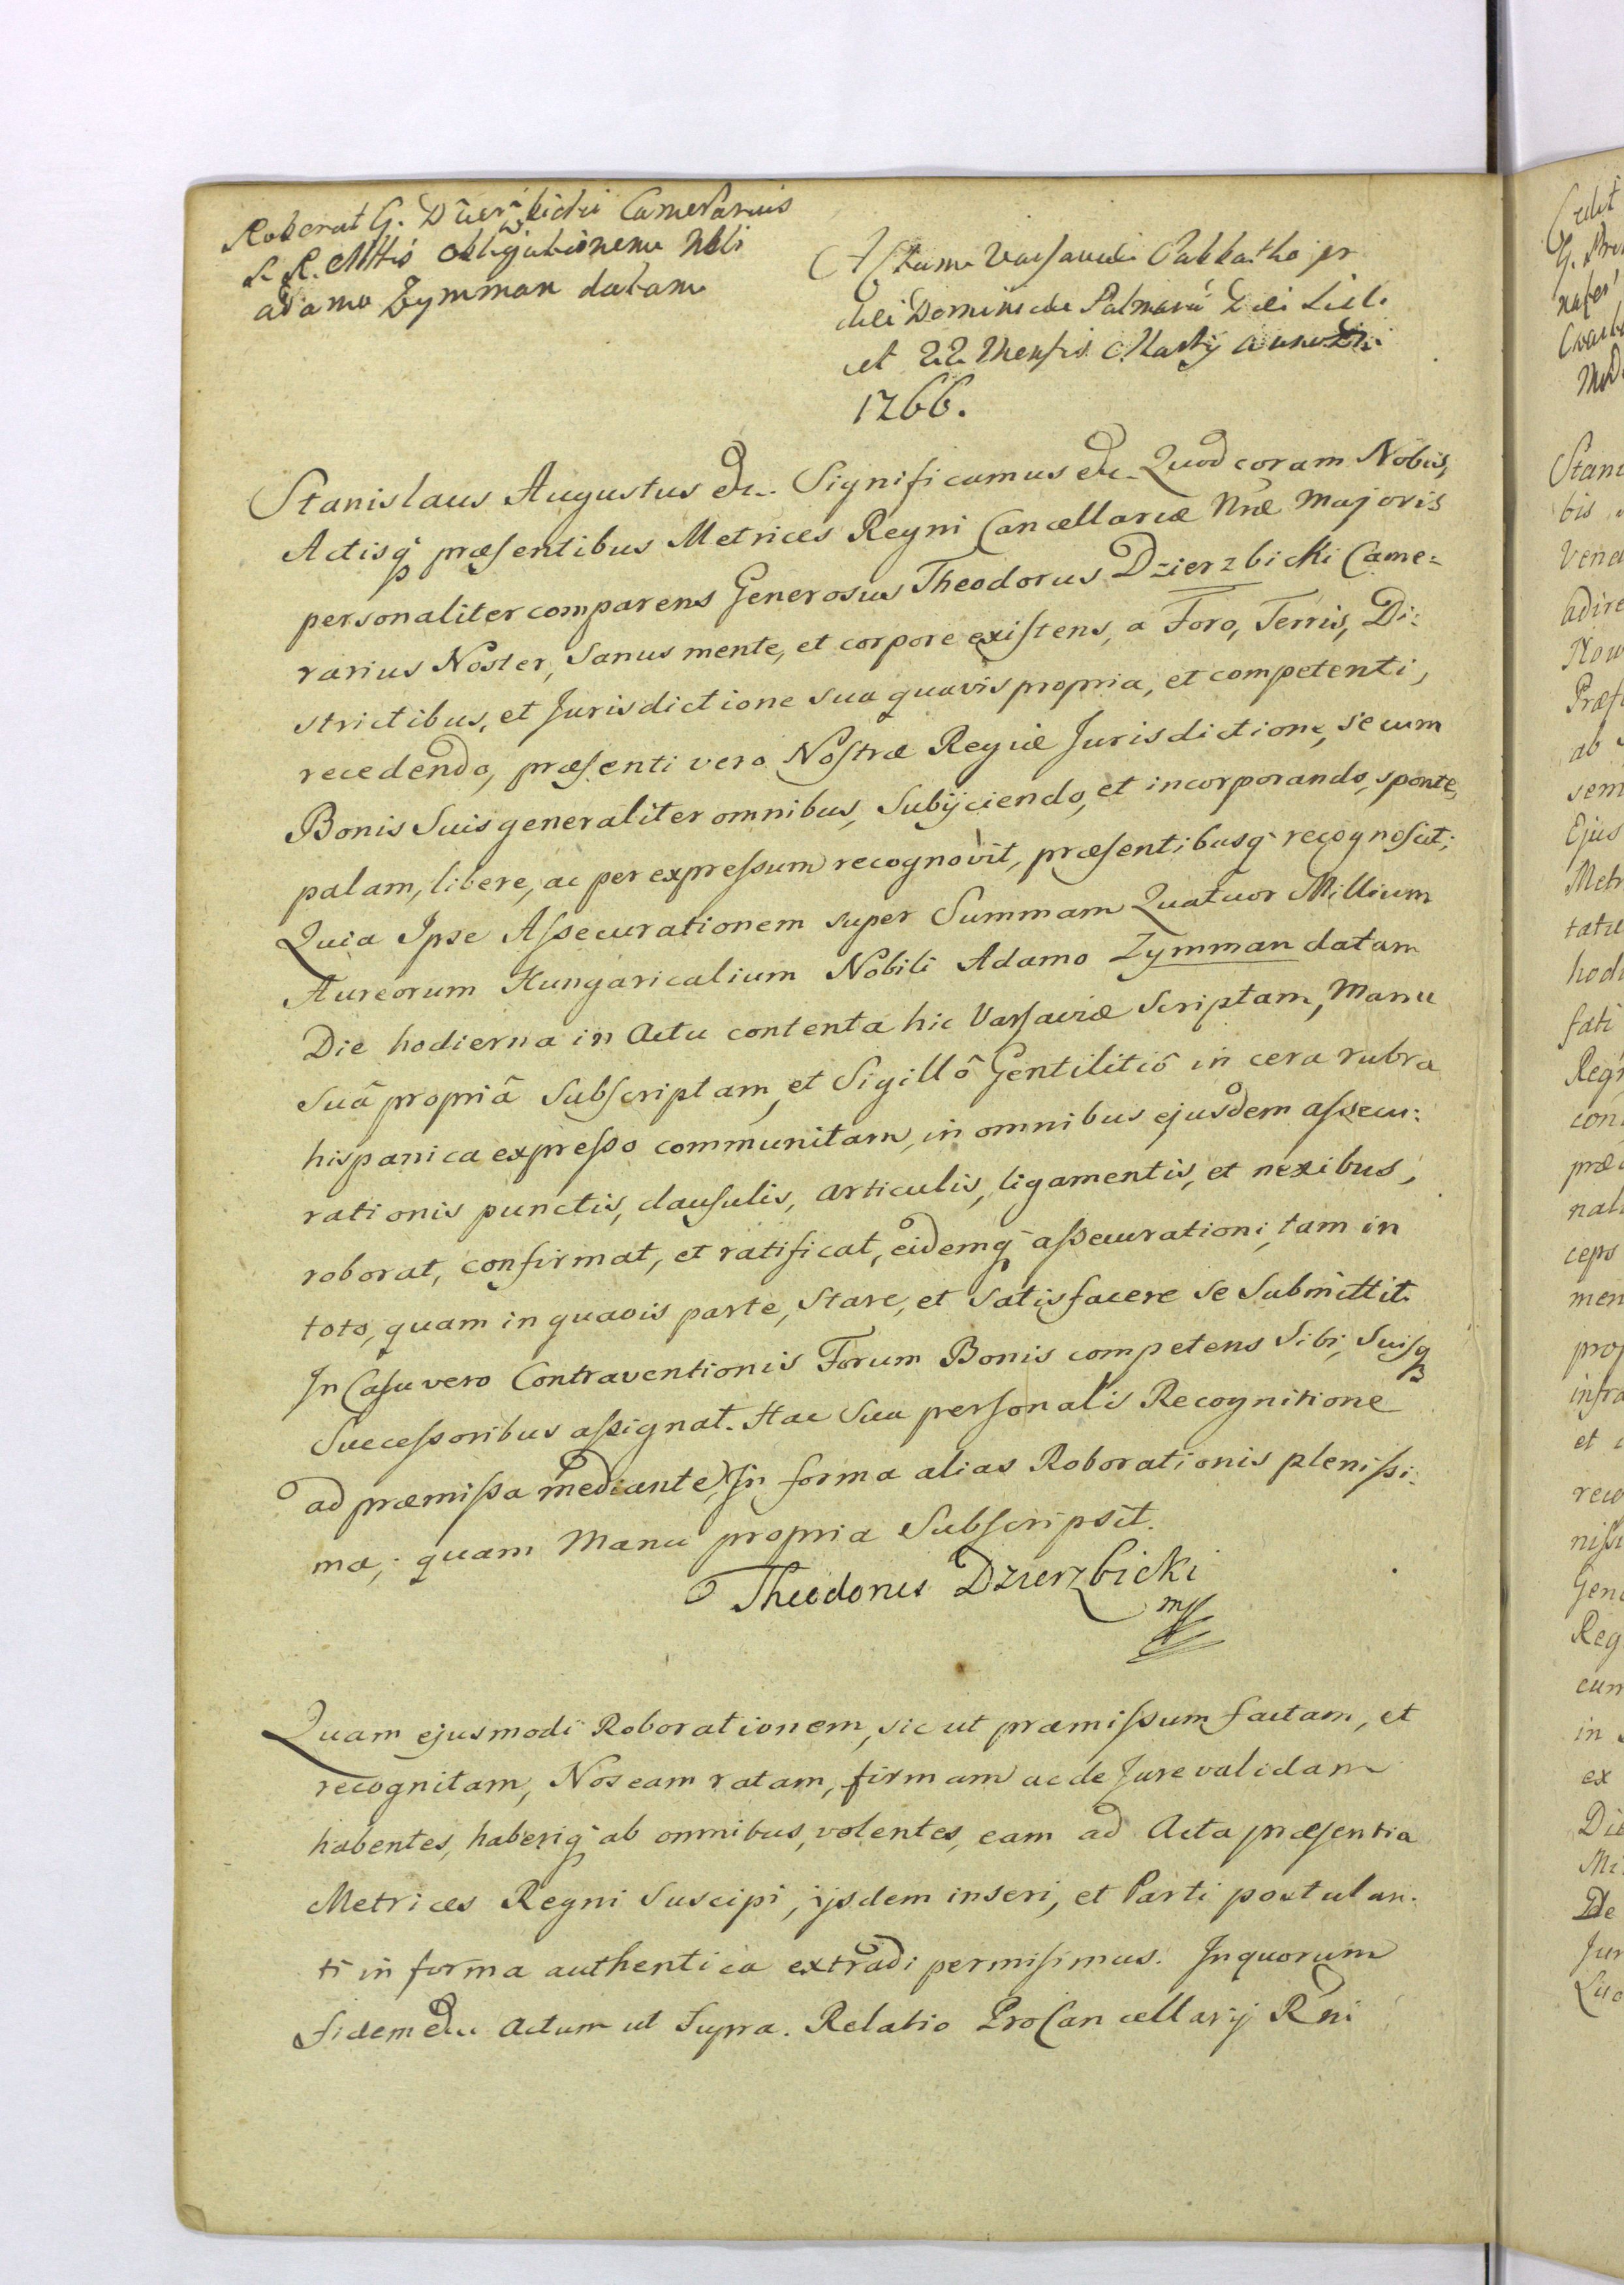 Roborat G. Dzierzbicki Camerarius
S. R. Mttis obligationem Nbli
adamo Zymman datam
Actum Varsaviæ Sabbatho pr
diei Dominicæ Palmarū
et 22 Mensis Martij anno Dni
1766.
Stanislaus Augustus &c. Significamus &c. Quod coram Nobis,
Actisq præsentibus Metrices Regni Cancellariæ Nræ Majoris
personaliter comparens Generosus Theodorus Dzierzbicki Came=
rarius Noster, Sanus mente, et corpore existens, a Foro, Terris, Di:
strictibus, et Jurisdictione sua quavis propria, et competenti,
recedendo, præsenti vero Nostræ Regiæ Jurisdictione, se cum
Bonis Suis generaliter omnibus, Subijciendo, et incorporando, sponte,
palam, libere, ac per expressum recognovit, præsentibusq recognoscit;
Quia Ipse Assecurationem super Summam Quatuor Millium
Aureorum Hungaricalium Nobili Adamo Zymman datam
Die hodierna in Actu contenta hic Varsaviæ Scriptam, Manu
Suâ propriâ Subscriptam, et Sigillô Gentilitiô in cera rubra
hispanica expresso communitam, in omnibus ejusdem assecu:
rationis punctis, clausulis, articulis, ligamentis, et nexibus,
roborat, confirmat, et ratificat, eidemq assecurationi, tam in
toto, quam in quavis parte, Stare, et Satisfacere se Submittit.
In Casu vero Contraventionis Forum Bonis competens Sibi, Suisq
Successoribus assignat. Hac Sua personalis Recognitione
ad præmissa mediante, In forma alias Roborationis plenissi:
ma, quam Manu propria Subscripsit.
Theodorus Dzierzbicki
mp
Quam ejusmodi Roborationem, sic ut præmissum factam, et
recognitam, Nos eam ratam, firmam ac de Jure validam
habentes, haberiq ab omnibus, volentes, eam ad Acta præsentia
Metrices Regni Suscipi, ijsdem inseri, et Parti postulan:
ti in forma authentica extradi permisimus. In quorum
fidem &c Actum ut Supra. Relatio ProCancellarij Rni